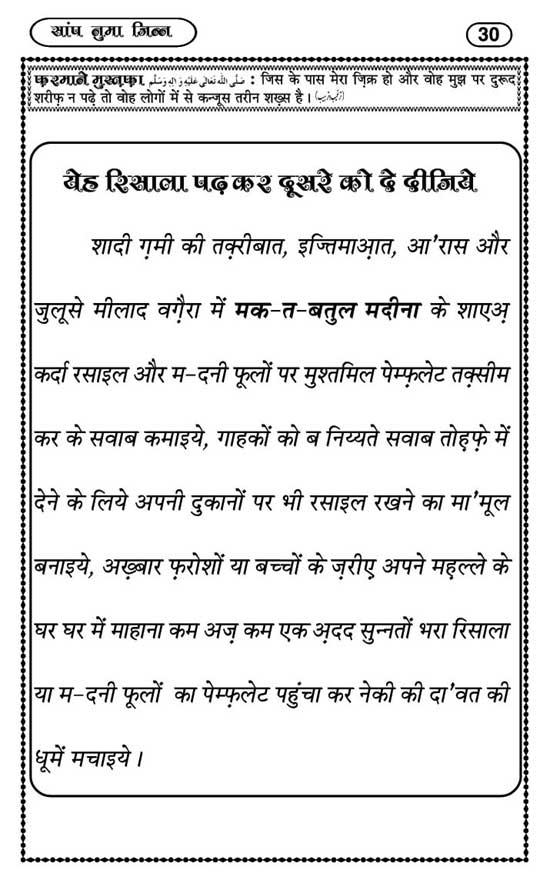 सांप नुमा जिन्न
30
फ़रमाने मुस्तफ़ा صَلَّى اللهُ تَعَالٰى عَلَيْهِ وَاٰلِهٖ وَسَلَّم : जिस के पास मेरा ज़िक्र हो और वोह मुझ पर दुरूद
शरीफ़ न पढ़े तो वोह लोगों में से कन्जूस तरीन शख़्स है ।
येह रिसाला पढ़ कर दूसरे को दे दीजिये
शादी ग़मी की तक़्रीबात, इज्तिमाआ़त, आ'रास और
जुलूसे मीलाद वग़ैरा में मक-त-बतुल मदीना के शाएअ़
कर्दा रसाइल और म-दनी फूलों पर मुश्तमिल पेम्फ़लेट तक़्सीम
कर के सवाब कमाइये, गाहकों को ब निय्यते सवाब तोह़फ़े में
देने के लिये अपनी दुकानों पर भी रसाइल रखने का मा'मूल
बनाइये, अख़्बार फ़रोशों या बच्चों के ज़रीए अपने मह़ल्ले के
घर घर में माहाना कम अज़ कम एक अ़दद सुन्नतों भरा रिसाला
या म-दनी फूलों का पेम्फ़लेट पहुंचा कर नेकी की दा'वत की
धूमें मचाइये ।